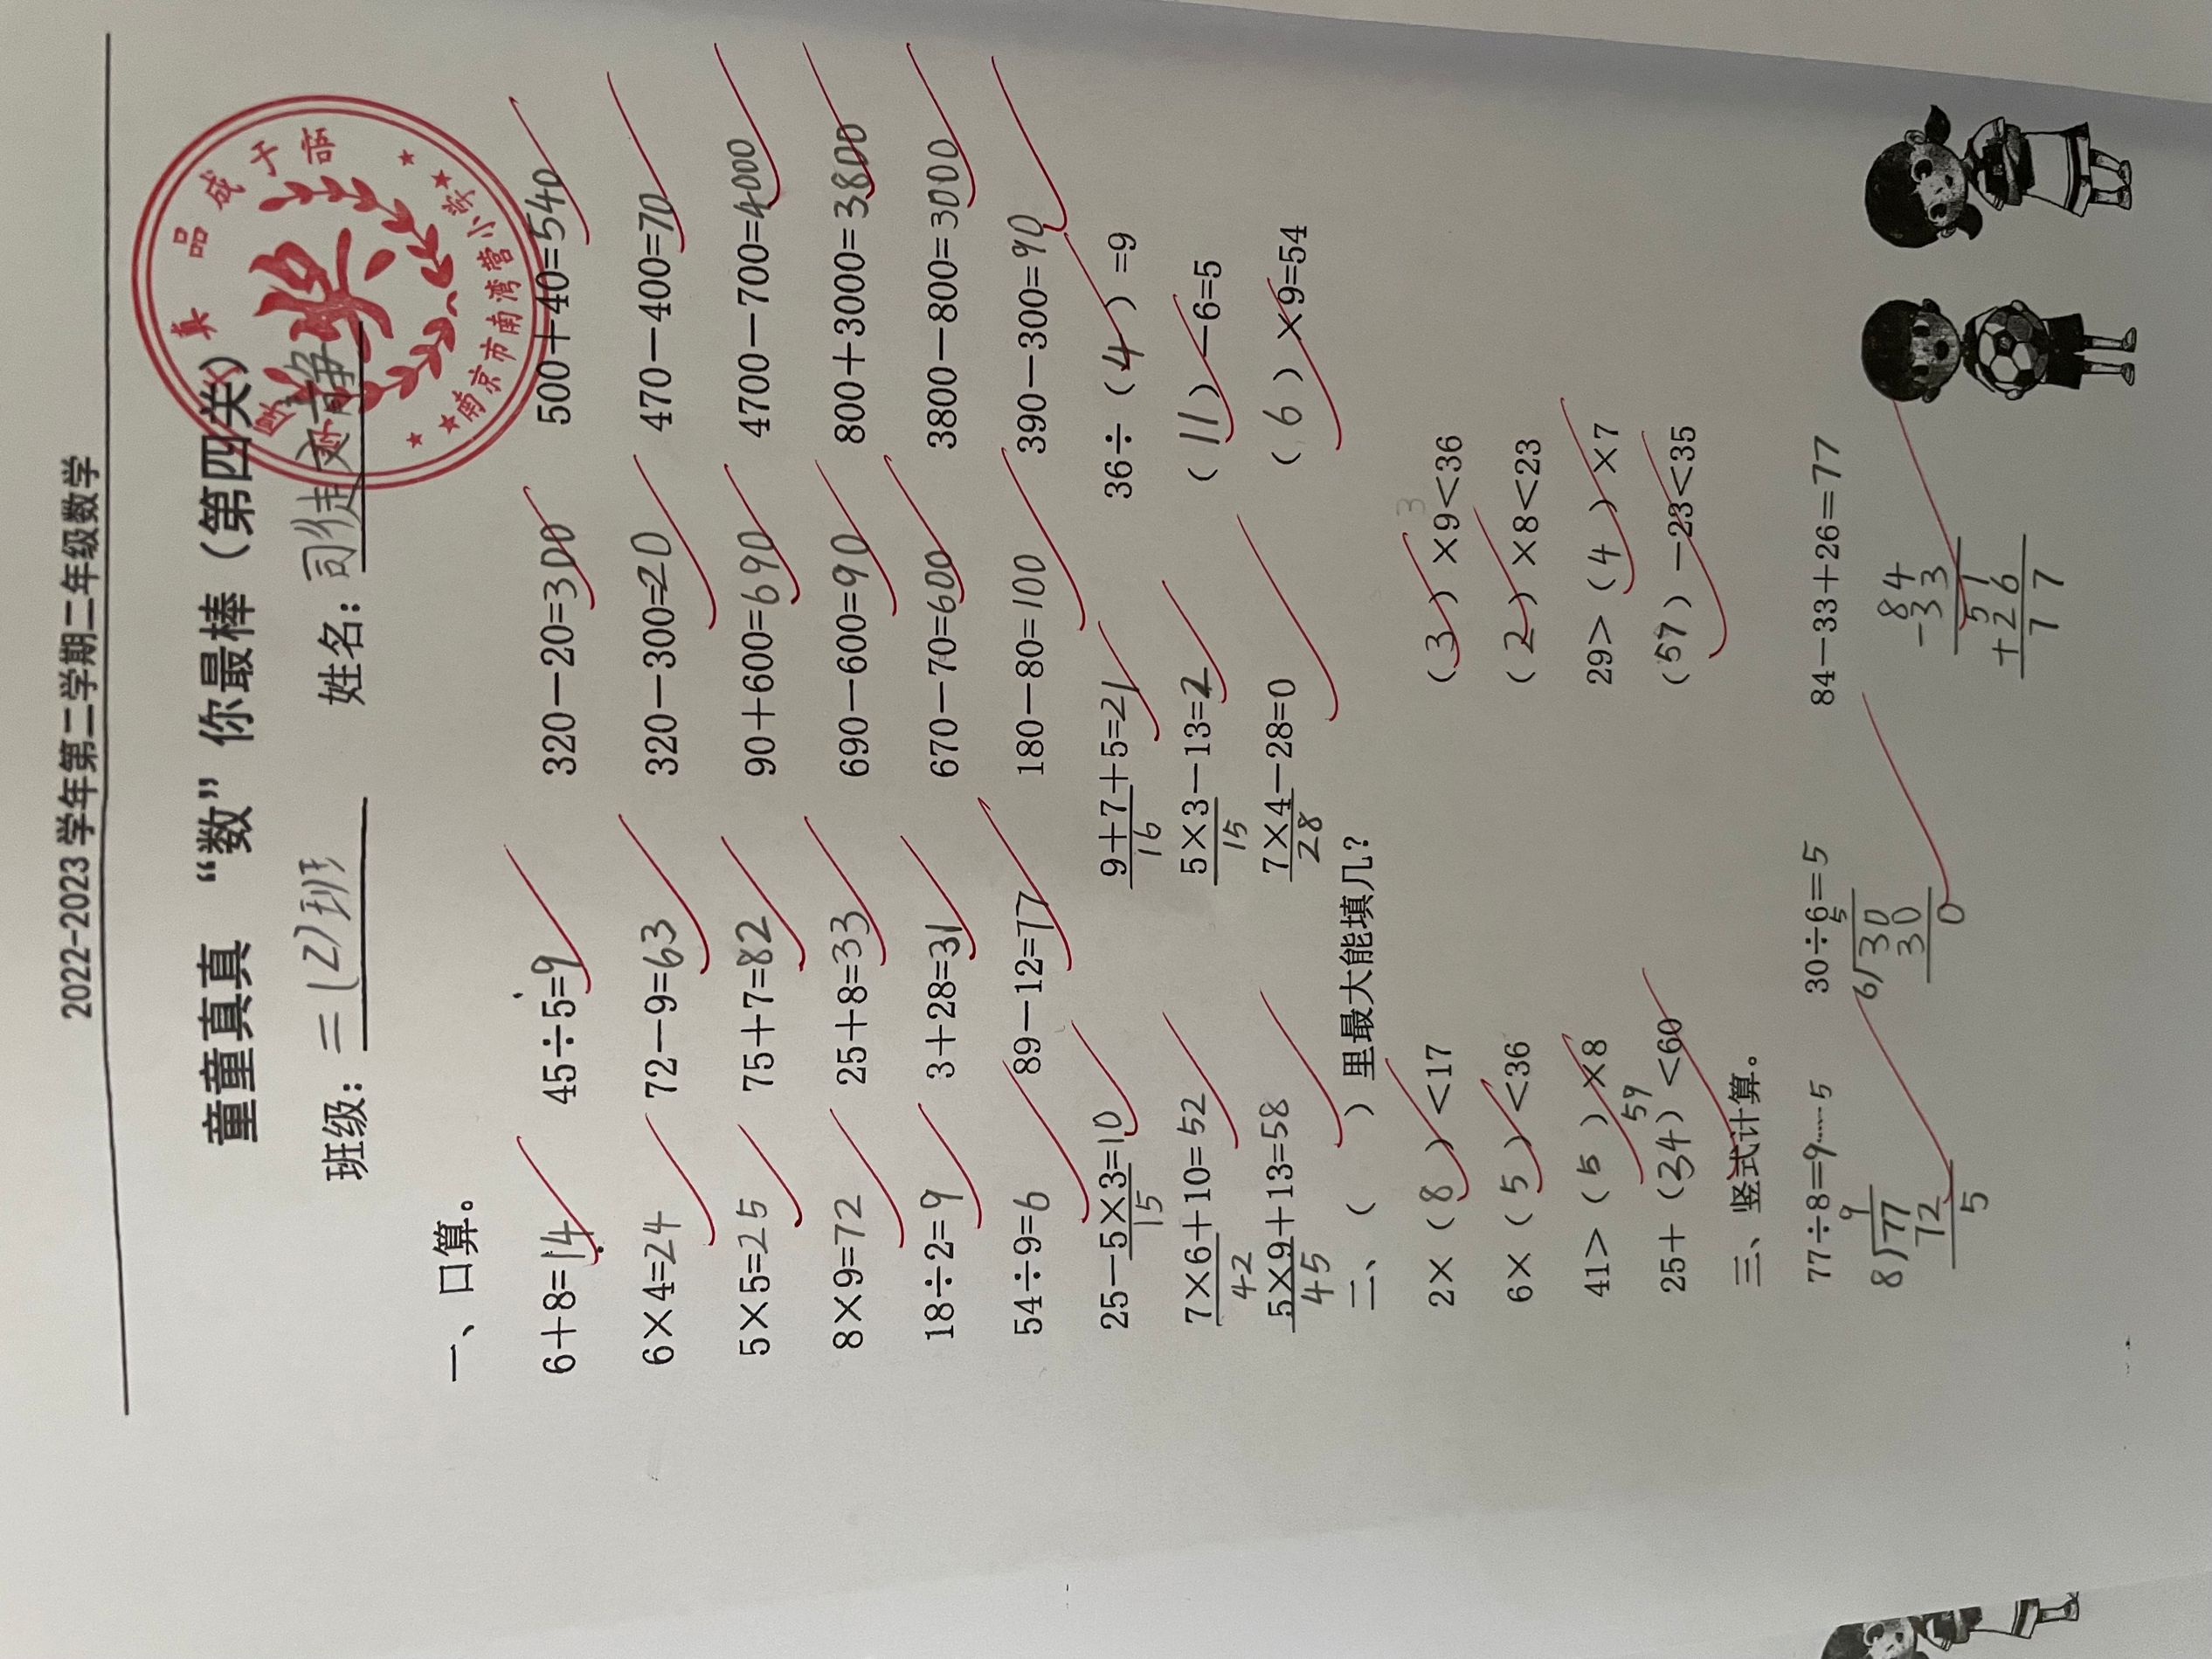 2022-2023 学年第二学期二年级数学
童童真真 “数” 你最棒（第四关）
班级：二(2)班 姓名：司徒文静
真品成于悟
南京市南湾营小学
一、口算。
6+8=14 45÷5=9 320-20=300 500+40=540
6×4=24 72-9=63 320-300=20 470-400=70
5×5=25 75+7=82 90+600=690 4700-700=4000
8×9=72 25+8=33 690-600=90 800+3000=3800
18÷2=9 3+28=31 670-70=600 3800-800=3000
54÷9=6 89-12=77 180-80=100 390-300=90
25-5×3=10 9+7+5=21 36÷（4）=9
15 16
7×6+10=52 5×3-13=2 （11）-6=5
42 15
5×9+13=58 7×4-28=0 （6）×9=54
45 28
二、（ ）里最大能填几？
3
2×（8）<17 （3）×9<36
6×（5）<36 （2）×8<23
41>（5）×8 29>（4）×7
59
25+（34）<60 （57）-23<35
三、竖式计算。
77÷8=9……5 30÷6=5 84-33+26=77
9 5 84
8 77 6 30 -33
72 30 51
5 0 +26
77